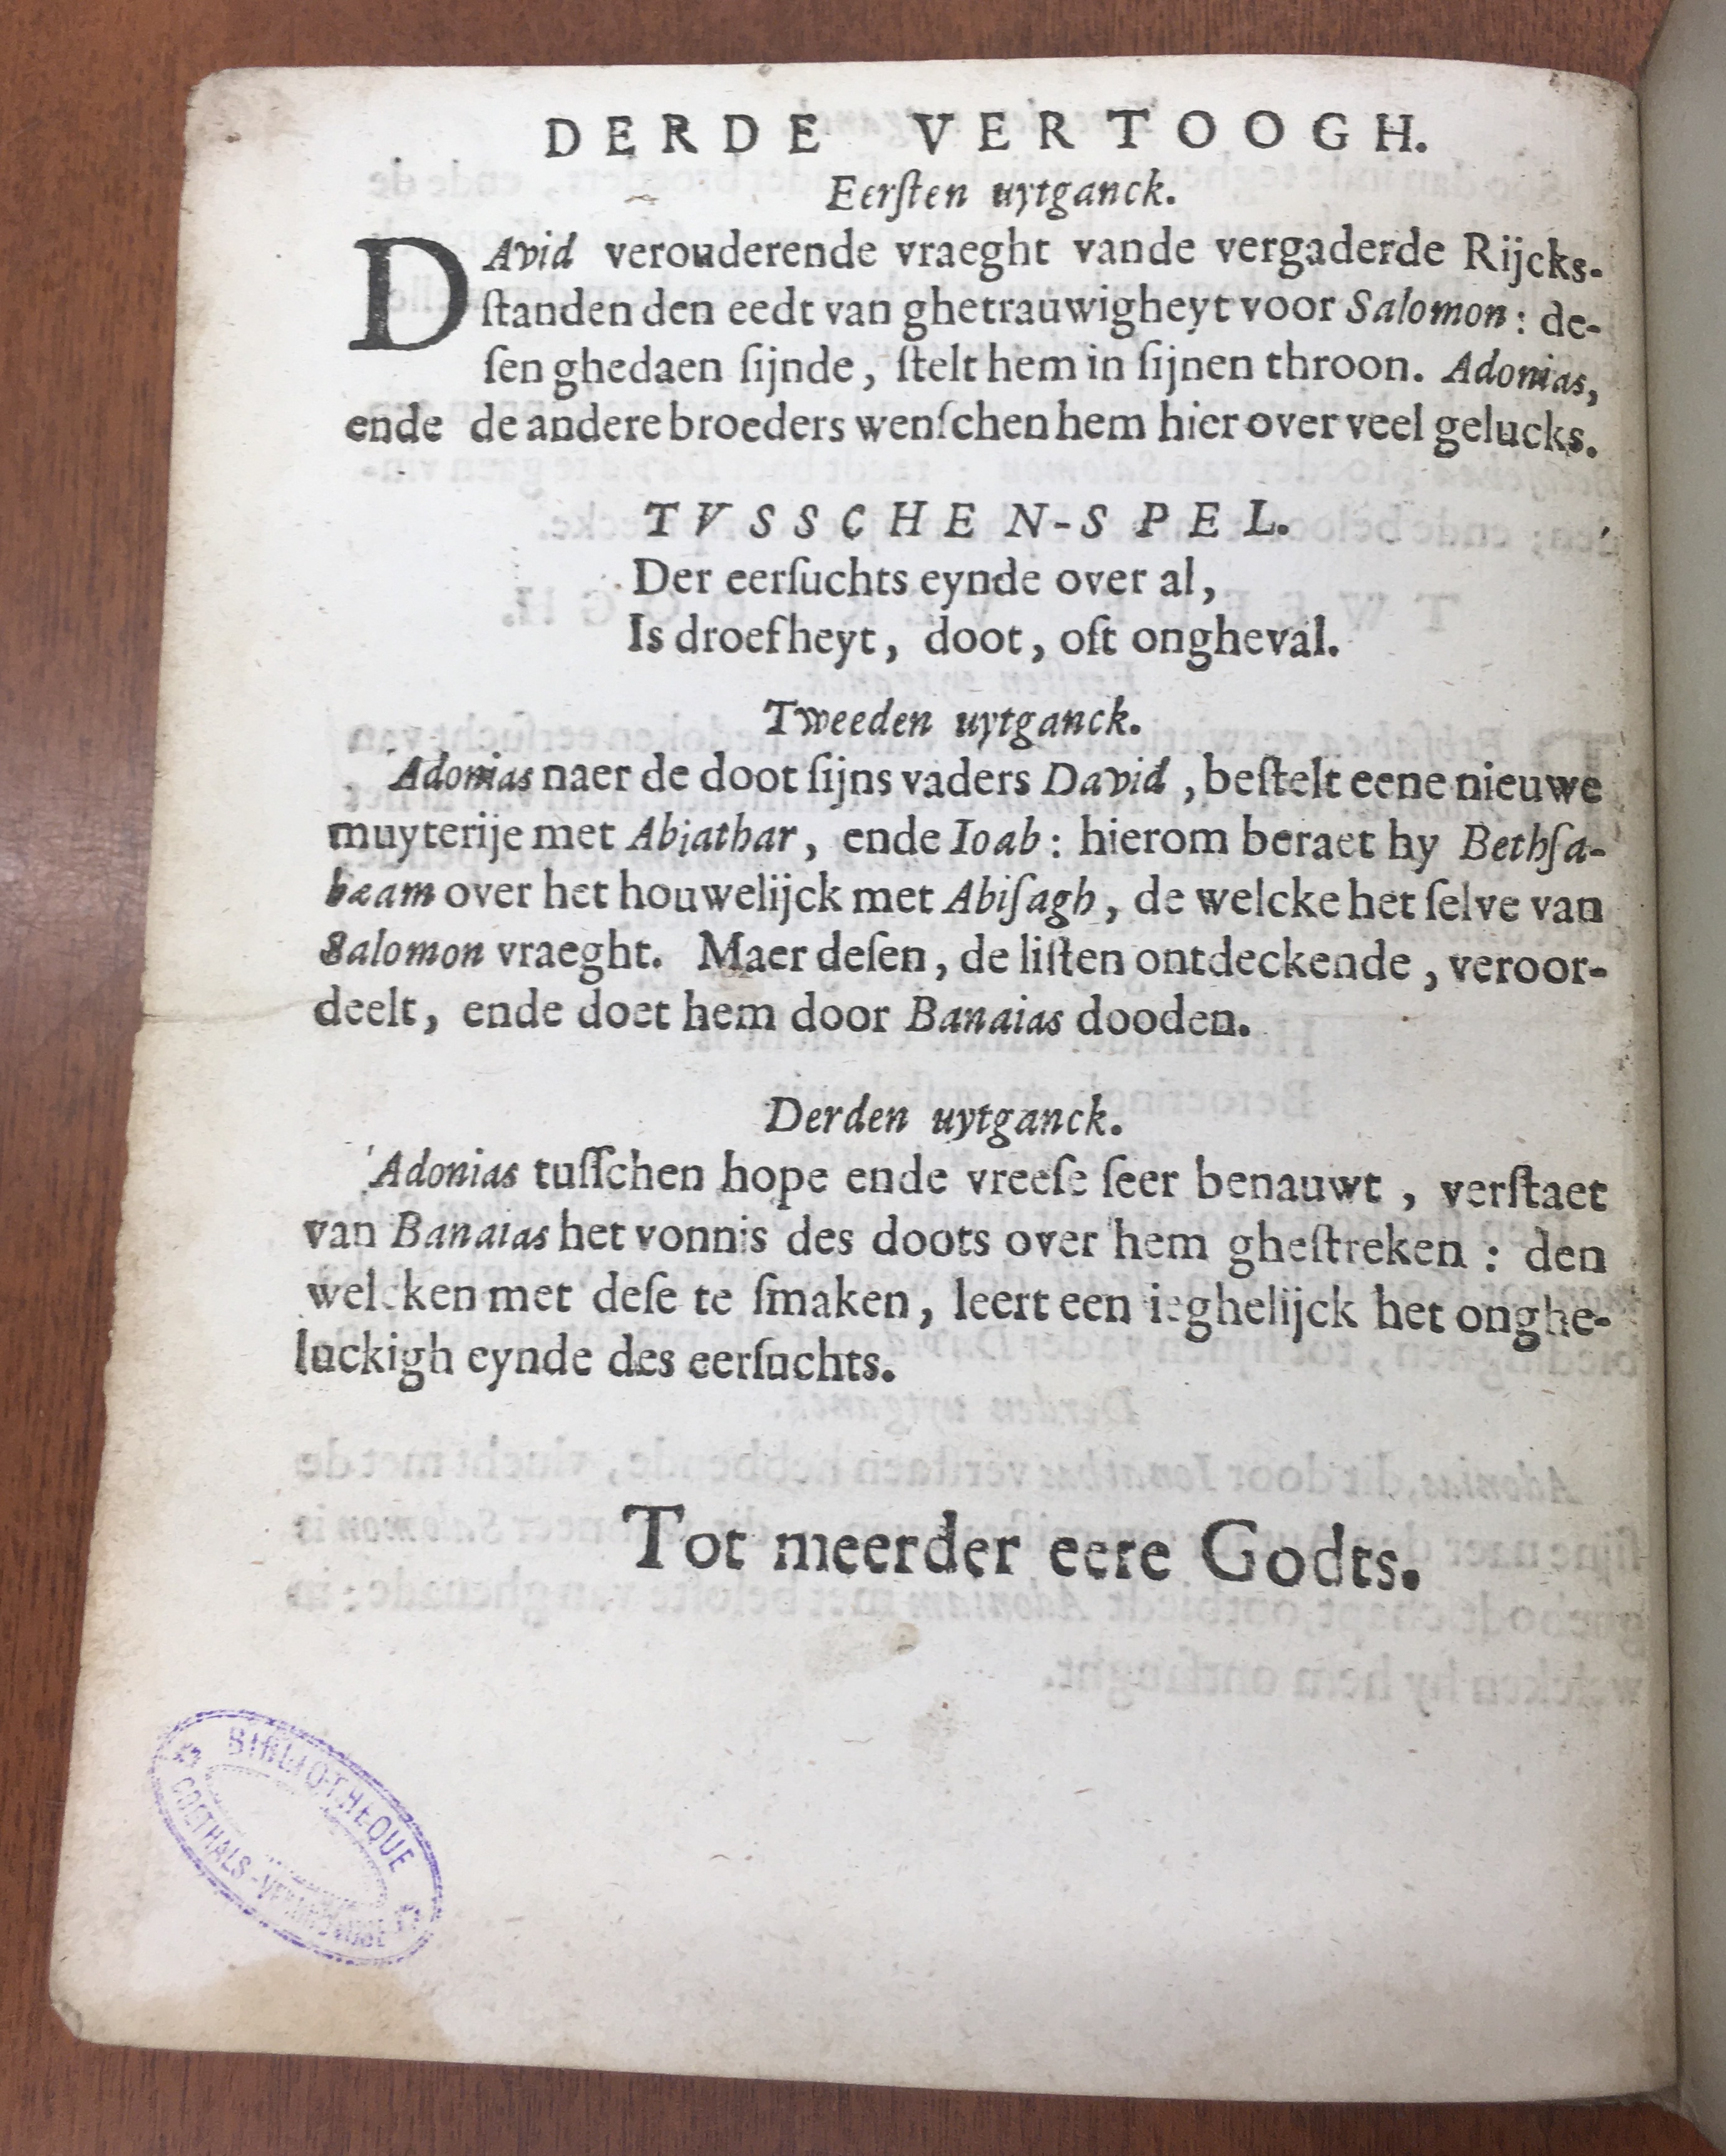 DERDE VERTOOGH.
Eerſten uytganck.
DAvid verouderende vraeght vande vergaderde Rijcks-
ſtanden den eedt van ghetrauwigheyt voor Salomon : de-
ſen ghedaen ſijnde, ſtelt hem in ſijnen throon. Adonias,
ende de andere broeders wenſchen hem hier over veel gelucks.
TVSSCHEN-SPEL.
Der eerſuchts eynde over al,
Is droefheyt, doot, oft ongheval.
Tweeden uytganck.
Adonias naer de doot ſijns vaders David, beſtelt eene nieuwe
muyterije met Abiathar, ende Ioab : hierom beraet hy Bethſa-
bæam over het houwelijck met Abiſagh, de welcke het ſelve van
Salomon vraeght. Maer deſen, de liſten ontdeckende, veroor-
deelt, ende doet hem door Banaias dooden.
Derden uytganck.
Adonias tuſſchen hope ende vreeſe ſeer benauwt, verſtaet
van Banaias het vonnis des doots over hem gheſtreken : den
welcken met deſe te ſmaken, leert een ieghelijck het onghe-
luckigh eynde des eerſuchts.
Tot meerder eere Godts.
BIBLIOTHEQUE
GOETHALS-VERCRUYSSE